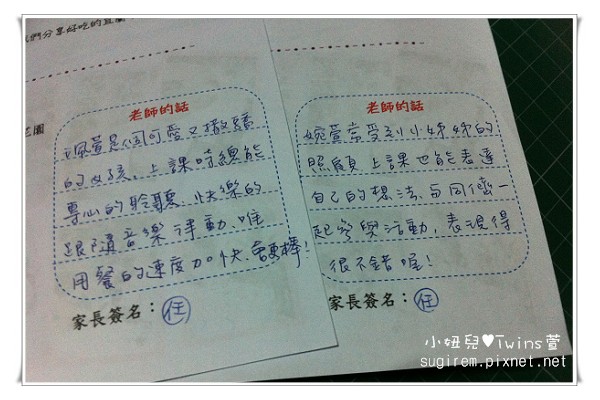 們分享好吃的宜蘭
老師的話
珮萱是個可愛又撒嬌
的女孩,上課時總能
專心的聆聽、快樂的
跟隨音樂律動、唯
用餐的速度加快、會更棒!
家長簽名:任
老師的話
婉萱常受到小姊姊的
照顧上課也能表達
自己的想法,與同儕一
起參與活動,表現得
很不錯喔!
家長簽名:任
小妞兒♥Twins萱
sugirem.pixnet.net